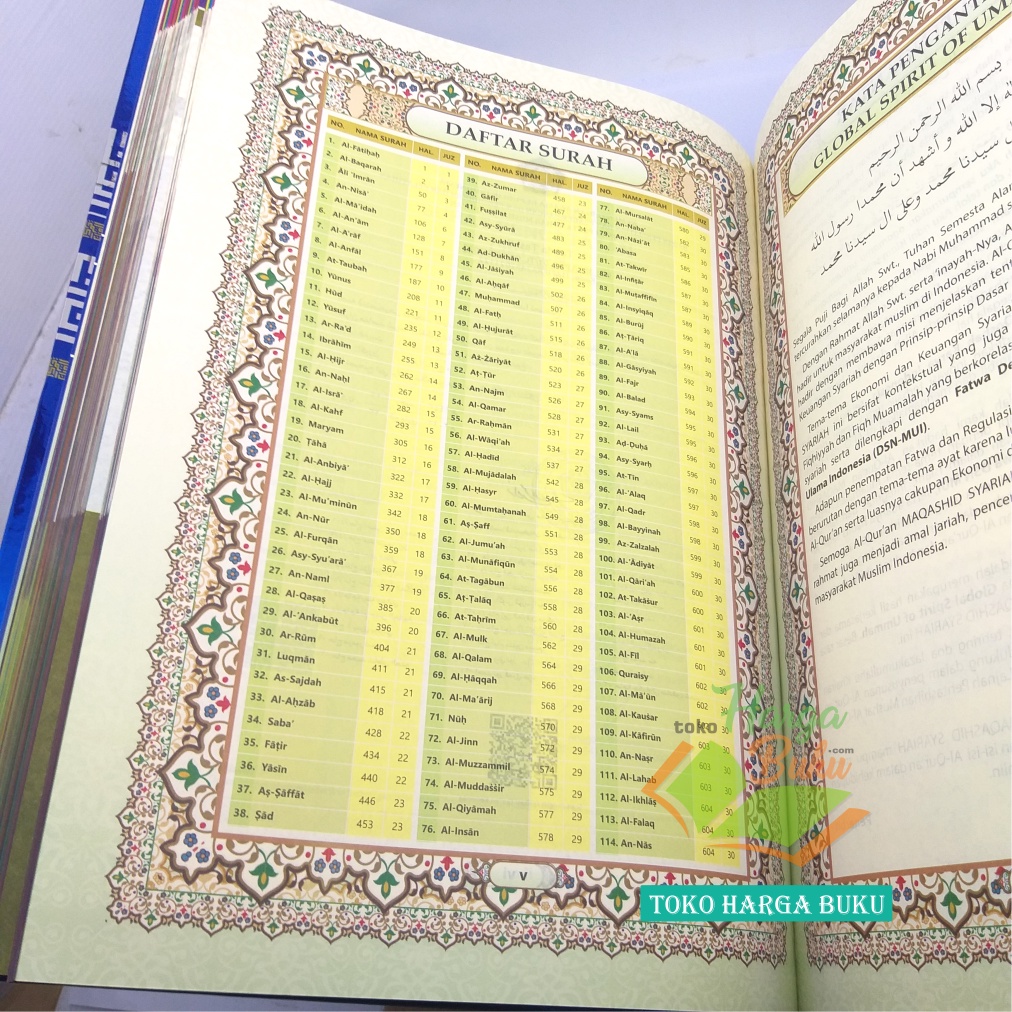 DAFTAR SURAH
NO. NAMA SURAH HAL. JUZ
1. Al-Fātiḥaḥ 1 1
2. Al-Baqarah 2 1
3. Āli 'Imrān 50 3
4. An-Nisā' 77 4
5. Al-Mā'idah 106 6
6. Al-An'ām 128 7
7. Al-A'rāf 151 8
8. Al-Anfāl 177 9
9. At-Taubah 187 10
10. Yūnus 208 11
11. Hūd 221 11
12. Yūsuf 235 12
13. Ar-Ra'd 249 13
14. Ibrāhīm 255 13
15. Al-Ḥijr 262 14
16. An-Naḥl 267 14
17. Al-Isrā' 282 15
18. Al-Kahf 293 15
19. Maryam 305 16
20. Ṭāhā 312 16
21. Al-Anbiyā' 322 17
22. Al-Ḥajj 332 17
23. Al-Mu'minūn 342 18
24. An-Nūr 350 18
25. Al-Furqān 359 18
26. Asy-Syu'arā' 367 19
27. An-Naml 377 19
28. Al-Qaṣaṣ 385 20
29. Al-'Ankabūt 396 20
30. Ar-Rūm 404 21
31. Luqmān 411 21
32. As-Sajdah 415 21
33. Al-Aḥzāb 418 21
34. Saba' 428 22
35. Fāṭir 434 22
36. Yāsīn 440 22
37. Aṣ-Ṣāffāt 446 23
38. Ṣād 453 23
NO. NAMA SURAH HAL. JUZ
39. Az-Zumar 458 23
40. Gāfir 467 24
41. Fuṣṣilat 477 24
42. Asy-Syūrā 483 25
43. Az-Zukhruf 489 25
44. Ad-Dukhān 496 25
45. Al-Jāṡiyah 499 25
46. Al-Aḥqāf 502 26
47. Muḥammad 507 26
48. Al-Fatḥ 511 26
49. Al-Ḥujurāt 515 26
50. Qāf 518 26
51. Aż-Żāriyāt 520 26
52. Aṭ-Ṭūr 523 27
53. An-Najm 526 27
54. Al-Qamar 528 27
55. Ar-Raḥmān 531 27
56. Al-Wāqi'ah 534 27
57. Al-Ḥadīd 537 27
58. Al-Mujādalah 542 28
59. Al-Ḥasyr 545 28
60. Al-Mumtaḥanah 549 28
61. Aṣ-Ṣaff 551 28
62. Al-Jumu'ah 553 28
63. Al-Munāfiqūn 554 28
64. At-Tagābun 556 28
65. Aṭ-Ṭalāq 558 28
66. At-Taḥrīm 560 28
67. Al-Mulk 562 29
68. Al-Qalam 564 29
69. Al-Ḥāqqah 566 29
70. Al-Ma'ārij 568 29
71. Nūḥ 570 29
72. Al-Jinn 572 29
73. Al-Muzzammil 574 29
74. Al-Muddaṡṡir 575 29
75. Al-Qiyāmah 577 29
76. Al-Insān 578 29
NO. NAMA SURAH HAL. JUZ
77. Al-Mursalāt 580 29
78. An-Naba' 582 30
79. An-Nāzi'āt 583 30
80. 'Abasa 585 30
81. At-Takwīr 586 30
82. Al-Infiṭār 587 30
83. Al-Muṭaffifīn 587 30
84. Al-Insyiqāq 589 30
85. Al-Burūj 590 30
86. Aṭ-Ṭāriq 591 30
87. Al-A'lā 591 30
88. Al-Gāsyiyah 592 30
89. Al-Fajr 593 30
90. Al-Balad 594 30
91. Asy-Syams 595 30
92. Al-Lail 595 30
93. Aḍ-Ḍuḥā 596 30
94. Asy-Syarḥ 596 30
95. At-Tīn 597 30
96. Al-'Alaq 597 30
97. Al-Qadr 598 30
98. Al-Bayyinah 598 30
99. Az-Zalzalah 599 30
100. Al-'Ādiyāt 599 30
101. Al-Qāri'ah 600 30
102. At-Takāṡur 600 30
103. Al-'Aṣr 601 30
104. Al-Humazah 601 30
105. Al-Fīl 601 30
106. Quraisy 602 30
107. Al-Mā'ūn 602 30
108. Al-Kauṡar
109. Al-Kāfirūn 603 30
110. An-Naṣr 603 30
111. Al-Lahab 603 30
112. Al-Ikhlāṣ 604 30
113. Al-Falaq 604 30
114. An-Nās 604 30
v
KATA PENGANT
GLOBAL SPIRIT OF UM
بسم الله الرحمن الرحيم
إلا الله و أشهد أن محمدا رسول الله
سيدنا محمد وعلى ال سيدنا محمد
Segala Puji Bagi Allah Swt. Tuhan Semesta Alam
tercurahkan selamanya kepada Nabi Muhammad s
Dengan Rahmat Allah Swt. serta 'inayah-Nya, A
hadir untuk masyarakat muslim di Indonesia. Al-Q
hadir dengan membawa misi menjelaskan tent
Keuangan Syariah dengan Prinsip-prinsip Dasar
Tema-tema Ekonomi dan Keuangan Syaria
SYARIAH ini bersifat kontekstual yang juga
Fiqhiyyah dan Fiqh Muamalah yang berkorelas
syariah serta dilengkapi dengan Fatwa De
Ulama Indonesia (DSN-MUI).
Adapun penempatan Fatwa dan Regulasi
berurutan dengan tema-tema ayat karena lu
Al-Qur'an serta luasnya cakupan Ekonomi d
Semoga Al-Qur'an MAQASHID SYARIA
rahmat juga menjadi amal jariah, pencer
masyarakat Muslim Indonesia.
toko Harga Buku .com
TOKO HARGA BUKU